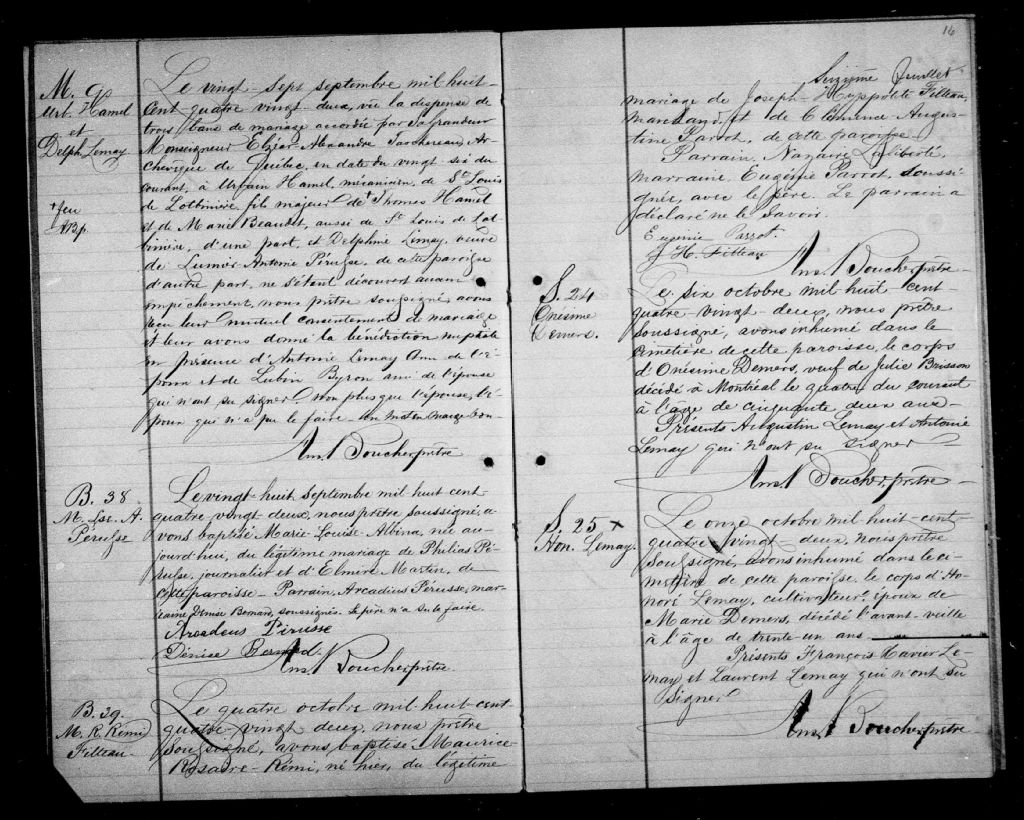 M. 9
Urb. Hamel
et
Delph. Lemay
+ feu
Le vingt-sept septembre mil huit-
cent quatre vingt-deux, vu la dispense de
trois bans de mariage accordée par Sa Grandeur
Monseigneur Elzéar-Alexandre Taschereau, Ar-
chevêque de Québec, en date du vingt six du
courant, à Urbain Hamel, mécanicien, de St Louis
de Lotbinière, fils majeur de + Thomas Hamel
et de Marie Beaudet, aussi de St. Louis de Lot
binière, d'une part, et Delphine Lemay, veuve
de Antoine Pérusse, de cette paroisse
d'autre part, ne s'étant découvert aucun
empêchement, nous prêtre soussigné, avons
reçu leur mutuel consentement de mariage
et leur avons donné la bénédiction nuptiale
en présence d'Antoine Lemay ami de l'é-
poux et de Lubin Byron ami de l'épouse
qui n'ont su signer non plus que l'épouse, l'é-
poux qui n'a pu le faire. Un mot en marge bon
Boucher ptre
B. 38
M. Lse. A.
Pérusse
Le vingt-huit septembre mil huit cent
quatre vingt deux, nous prêtre soussigné, a-
vons baptisé Marie-Louise-Albina, née au-
jourd'hui, du légitime mariage de Philias Pé-
russe, journalier et d'Elmire Martin, de
cette paroisse - Parrain, Arcadius Pérusse, mar-
raine Denise Bernard, soussignés. Le père n'a su le faire.
Arcadeus Pérusse
Dénise Bernard
Boucher ptre
B. 39.
M. R. Rémi
Filteau
Le quatre octobre mil huit-cent
quatre-vingt deux, nous prêtre
soussigné, avons baptisé Maurice-
Rosaire-Rémi, né hier, du légitime
16
Seizième feuillet
mariage de Joseph-Hyppolite Filteau,
marchand, et de Clémence Augus-
tine Parrot, de cette paroisse
Parrain, Nazaire Laliberté,
marraine, Eugénie Parrot, soussi-
gnée, avec le père. Le parrain a
déclaré ne le savoir.
Eugénie Parrot.
J H. Filteau
Boucher ptre
S. 24
Onésime
Demers.
Le six octobre mil huit cent-
quatre vingt-deux, nous prêtre
soussigné, avons inhumé dans le
cimetière de cette paroisse, le corps
d'Onésime Demers, veuf de Julie Brisson
décédé à Montréal le quatre du courant
à l'âge de cinquante deux ans-
Présents Augustin Lemay et Antoine
Lemay qui n'ont su signer
Boucher ptre
S. 25 +
Hon. Lemay.
Le onze octobre mil-huit-cent
quatre vingt-deux, nous prêtre
soussigné, avons inhumé dans le ci-
metière de cette paroisse, le corps d'Ho-
noré Lemay, cultivateur, époux de
Marie Demers, décédé l'avant-veille
à l'âge de trente-un ans
Présents François Xavier Le-
may et Laurent Lemay qui n'ont su
signer
Boucher ptre